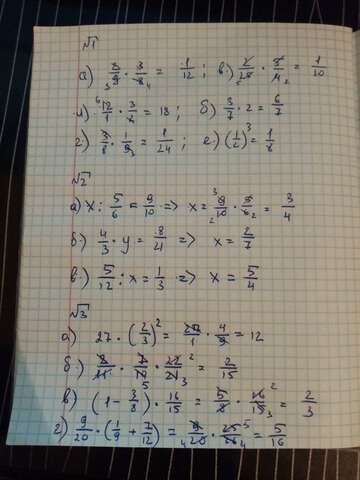 №1
а) 3/9 · 3/8 = 1/12 ; в) 2/25 · 5/4 = 1/10
д) 12/1 · 3/2 = 18 ; б) 3/7 · 2 = 6/7
г) 3/8 · 1/9 = 1/24 ; е) (1/2)³ = 1/8
№2
а) x : 5/6 = 9/10 => x = 9/10 · 5/6 = 3/4
б) 4/3 · y = 8/21 => x = 2/7
в) 5/12 : x = 1/3 => x = 5/4
№3
а) 27 · (2/3)² = 27/1 · 4/9 = 12
б) 8/11 · 7/10 · 22/21 = 2/15
в) (1 - 3/8) · 16/15 = 5/8 · 16/15 = 2/3
г) 9/20 · (1/9 + 7/12) = 9/20 · 25/36 = 5/16